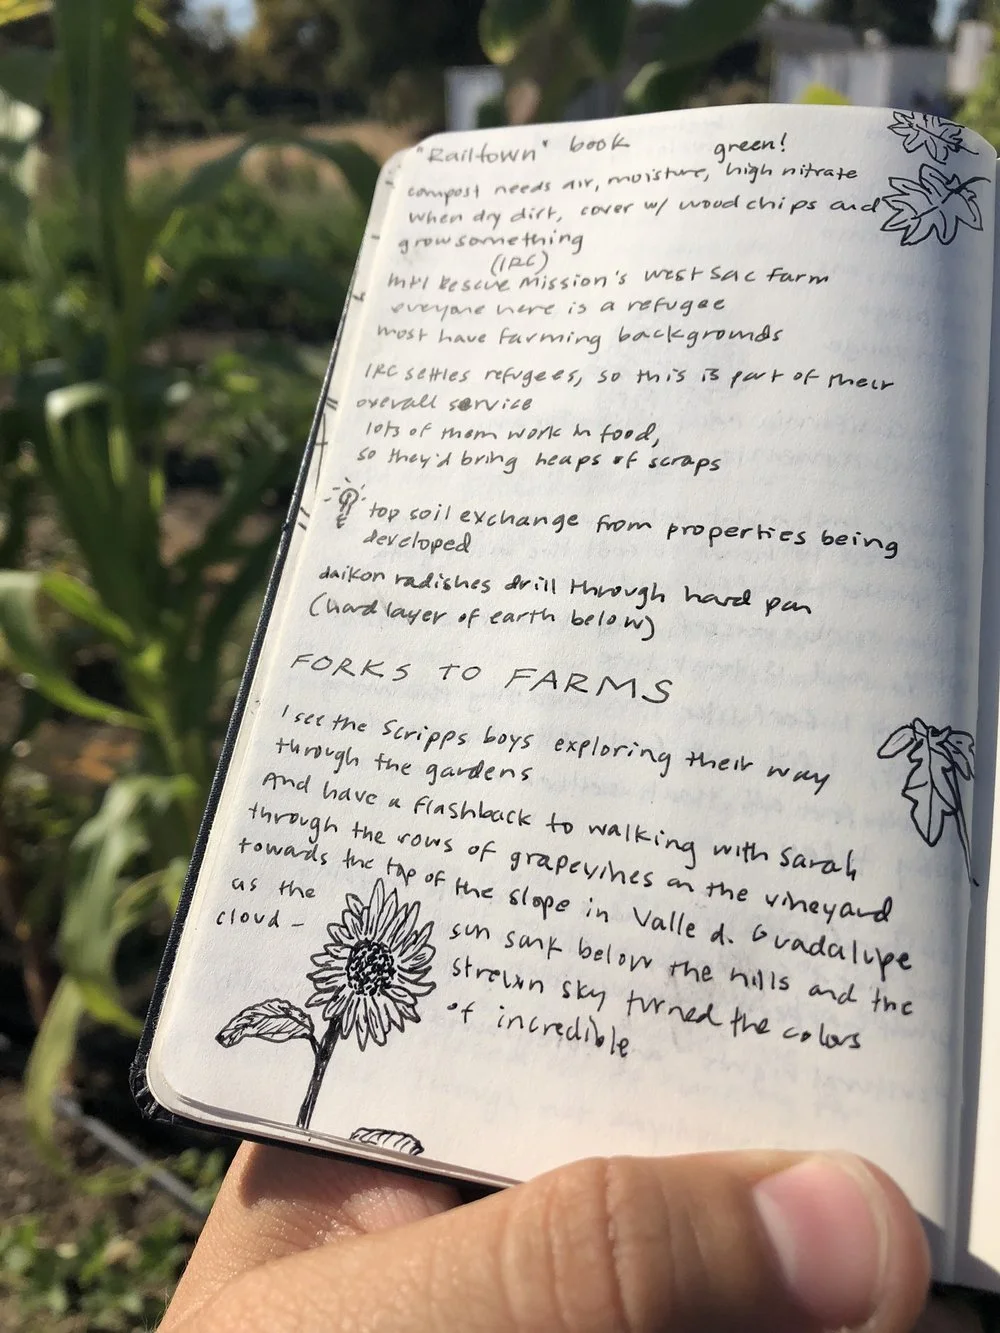 "Railtown" book green!
compost needs air, moisture, high nitrate
when dry dirt, cover w/ wood chips and
grow something
(IRC)
Int'l Rescue Mission's West Sac Farm
everyone here is a refugee
most have farming backgrounds
IRC settles refugees, so this is part of their
overall service
lots of them work in food,
so they'd bring heaps of scraps
top soil exchange from properties being
developed
daikon radishes drill through hard pan
(hard layer of earth below)
FORKS TO FARMS
I see the Scripps boys exploring their way
through the gardens
And have a flashback to walking with Sarah
through the rows of grapevines on the vineyard
towards the top of the slope in Valle d. Guadalupe
as the sun sank below the hills and the
cloud- strewn sky turned the colors
of incredible